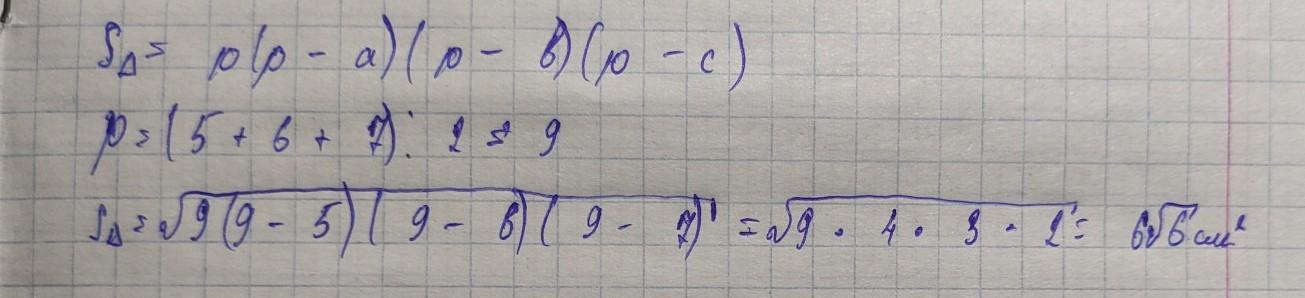 S△ = p(p - a)(p - b)(p - c)
p = (5 + 6 + 7) : 2 = 9
S△ = √9(9 - 5)(9 - 6)(9 - 7) = √9 · 4 · 3 · 2 = 6√6 см²